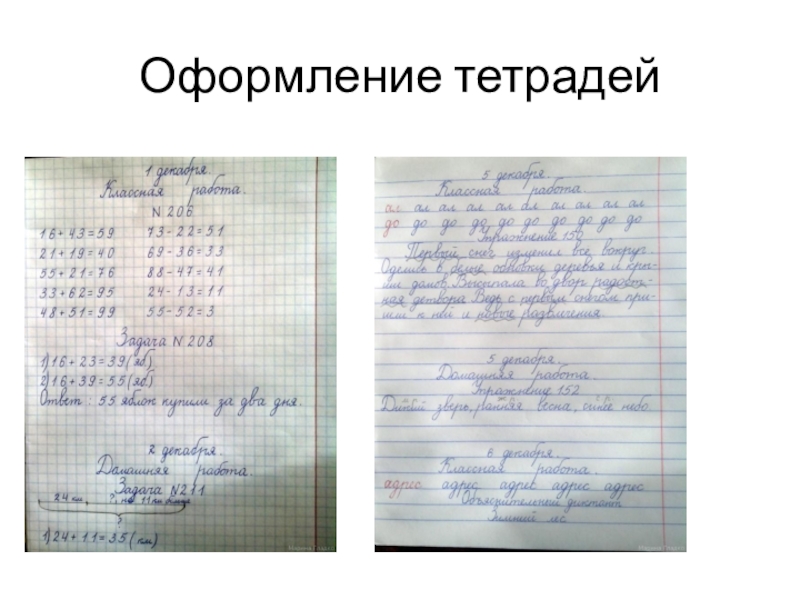 Оформление тетрадей
1 декабря.
Классная работа.
N 206
16+43=59 73-22=51
21+19=40 69-36=33
55+21=76 88-47=41
33+62=95 24-13=11
48+51=99 55-52=3
Задача N 208
1) 16+23=39 (яб)
2) 16+39=55 (яб)
Ответ: 55 яблок купили за два дня.
2 декабря.
Домашняя работа.
Задача N 211
24 км, ?, на 11 км
?
1) 24+11=35 (км)
5 декабря.
Классная работа.
ал ал ал ал ал ал ал ал ал ал
до до до до до до до до до до
Упражнение 150
Первый снег изменил все вокруг.
Одешло в белые обновки деревья и кры-
ши домов. Высыпала во двор радост-
ная детвора. Ведь с первым снегом при-
шем к ней и новые развлечения.
5 декабря.
Домашняя работа.
Упражнение 152.
Дикий зверь, ранняя весна, синее небо.
6 декабря.
Классная работа.
адрес адрес адрес адрес адрес
Объяснительный диктант
Зимний лес